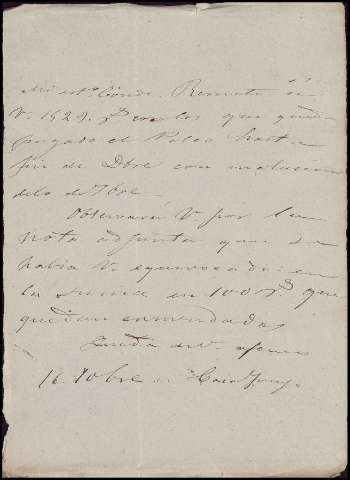 Mi est.º Conde. Remito á
V. 1529. rs con los que queda
pagado el Palco hasta
fin de Dbre con inclusion
de lo de 9bre.
Observará V. por la
nota adjunta que se
habia V. equivocado en
la suma en 100 rs que
quedan enmendados
Queda de V. afmo
16. 9bre